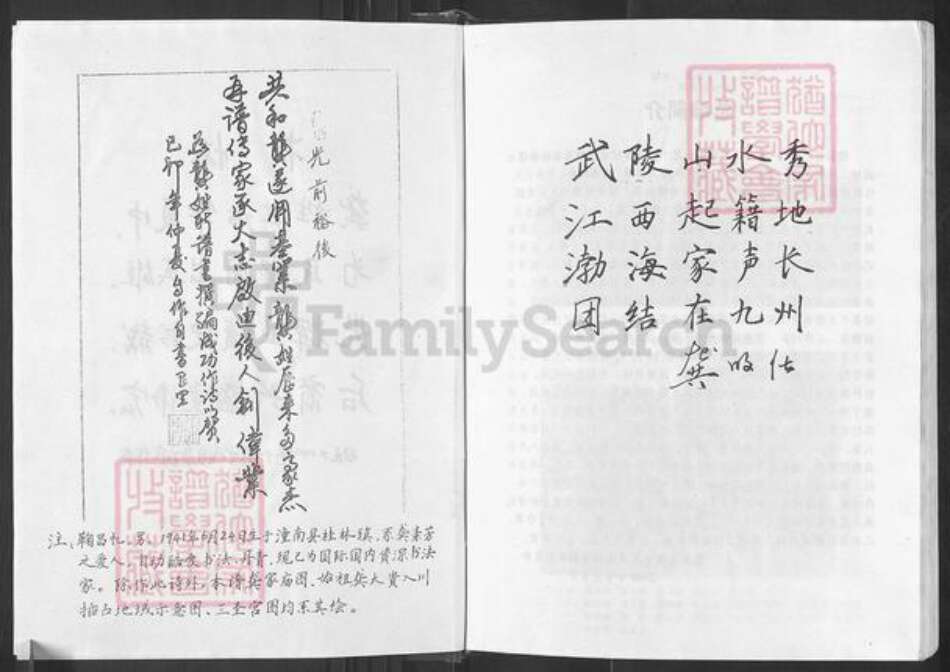 光前裕後
共和龔遂開基業龔姓歷來多豪杰
再谱传家逐大志啟迪後人創偉業
龔姓新谱書撰编成功作诗以贺
己卯年仲夏自作自書
注、鞠昌 男、1941年6月24日生于潼南县桂林镇、系龚素芳
之爱人、自幼酷爱书法、丹青、现已为国际国内资深书法
家。除作此诗外、本谱龚家庙图、始祖龚大贵入川
插占地域示意图、三圣宫图均系其绘。
秀地长州
水籍声九
山起家在龚
陵西海结
武江渤团
FamilySearch